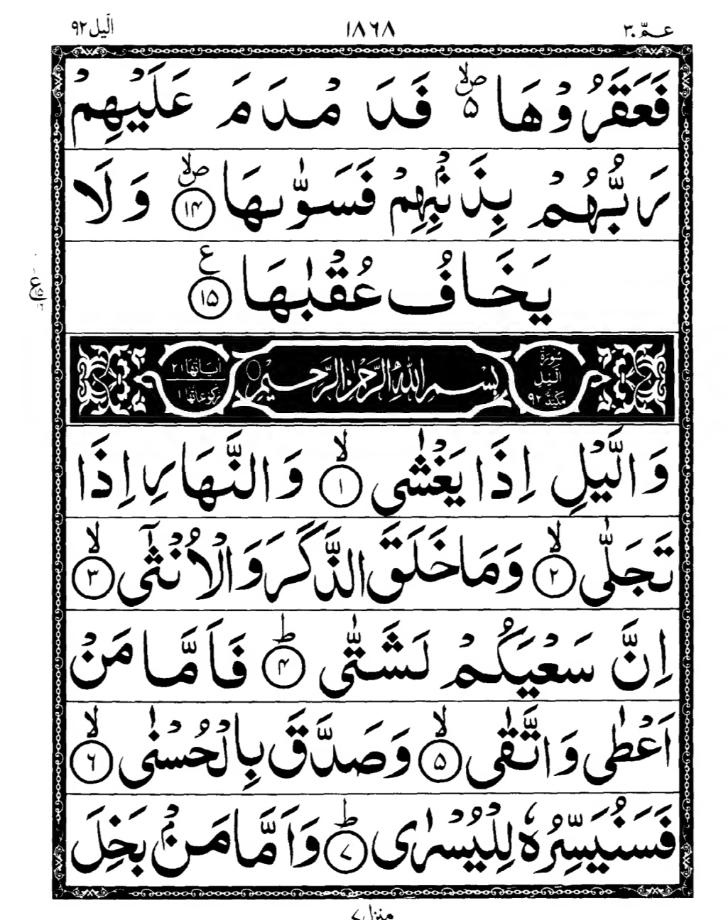 الّيل ٩٢ ١٨٦٨ عـمّ ٣٠
فَعَقَرُوْهَا ۵۪ۙ فَدَ مْدَمَ عَلَيْهِمْ
رَبُّهُمْ بِذَنْۢبِهِمْ فَسَوّٰىهَا ۪ۙ ۱۴ وَلَا
يَخَافُ عُقْبٰهَا ۱۵ ع
سُوْرَةُ الَّيْلِ مَكِّيَّةٌ ٩٢ بِسْمِ اللّٰهِ الرَّحْمٰنِ الرَّحِيْمِ اٰيَاتُهَا ٢١ رُكُوْعَاتُهَا ١
وَالَّيْلِ اِذَا يَغْشٰى ۙ ۱ وَالنَّهَارِ اِذَا
تَجَلّٰى ۙ ۲ وَمَا خَلَقَ الذَّكَرَ وَالْاُنْثٰۤى ۙ ۳
اِنَّ سَعْيَكُمْ لَشَتّٰى ؕ ۴ فَاَمَّا مَنْ
اَعْطٰى وَاتَّقٰى ۙ ۵ وَصَدَّقَ بِالْحُسْنٰى ۙ ۶
فَسَنُيَسِّرُهٗ لِلْيُسْرٰى ؕ ۷ وَاَمَّا مَنْۢ بَخِلَ
منزل ۷